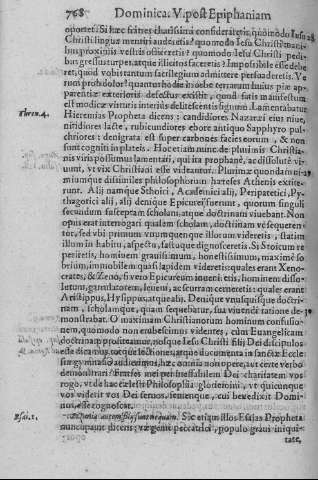 768 Dominica. V. post Epiphaniam
oportet. Si hæc fratres charissimi consideretis, quomodo Iesu 28
Christi lingua mentiri audeatis? quomodo Iesu Christi mani-
bus proximis vestris officeretis? quomodo Iesu Christi pedi-
bus gressuturpes, atque illicitos faceretis? Impossibile esse debe-
ret, quòd vobis tantum sacrilegium admittere persuaderetis. Ve
rum proh dolor! quanta hodie in orbe terrarum huius piæ ap-
parentiæ exterioris defectus existit, quod satis manifestum
est modicæ virtutis interiùs delitescentis signum. Lamentabatur
Thren. 4. Hieremias Propheta dicens: candidiores Nazaræi eius niue,
nitidiores lacte, rubicundiores ebore antiquo Sapphyro pul-
chriores: denigrata est super carbones facies eorum, & non
sunt cogniti in plateis. Hoc etiam nunc de plurimis Christia-
nis viris possumus lamentari, qui ita prophanè, ac dissolutè vi-
uunt, vt vix Christiani esse videantur. Plurimæ quondam ni- 29
miumque dissimiles philosophorum hæreses Athenis extite-
runt. Alij namque Sthoici, Academici alij, Peripatetici, Py-
thagorici alij, alij denique Epicurei fuerunt, quorum singuli
secundum susceptam scholam, atque doctrinam viuebant. Non
opus erat interrogari qualem scholam, doctrinam vè sequeren-
tur, sed vbi primum vnumquemque illorum videretis, statim
illum in habitu, aspectu, fastuque dignosceretis. Si Stoicum re
periretis, hominem grauissimum, honestissimum, maximè so
brium, immobilem quasi lapidem videretis: quales erant Xeno-
crates, & Zeno, si verò Epicureum inueniretis, hominem disso-
lutum, garrulatorem, leuem, ac scurram cerneretis: quales erant
Aristippus, Hysippus, atque alij. Denique vnusquisque doctri-
nam, scholamque, quam sequebatur, sua viuendi ratione de- 30
monstrabat. O maximam Christianorum hominum confusio-
nem, quomodo non erubescimus videntes, cùm Euangelicam
doctrinam profiteamur, nosque Iesu Christi filij Dei discipulos
esse dicamus, tot que lectiones, atque documenta in sanctæ Eccle
siæ gymnasio audierimus, hæc omnia non opere, aut certè verbo
demonstrari? Fratres mei per ineffabilem Dei charitatem vos
rogo, vt de hac cælesti Philosophia gloriemini, vt quicunque
vos viderit vos Dei seruos, semenque, cui benedixit Domi-
nus, esse cognoscat.
Esai. 1. Sic etiam illos Esaias Propheta
nuncupauit dicens: væ genti peccatrici, populo graui iniqui-
tate,